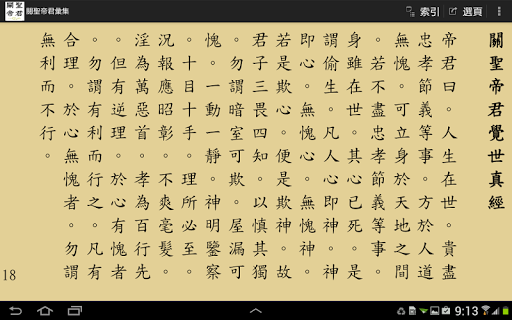 關聖帝君彙集
索引
選頁
關聖帝君覺世真經
帝君曰。人生在世。貴盡
忠孝節義等事。方於人道
無愧。可立身於天地之間
。若不盡忠孝節義等事。
身雖在世。其心已死。是
謂偷生。凡人心即神。神
即心。無愧心。無愧神。
若是欺心。便是欺神。故
君子三畏四知。以慎其獨
。勿謂暗室可欺。屋漏可
愧。一動一靜。神明鑒察
。十目十手。理所必至。
況報應昭彰。不爽毫髮。
淫為萬惡首。孝為百行先
。但有逆理。於心有愧者
。勿謂有利而行之。凡有
合理。於心無愧者。勿謂
無利而不行。
18
9:13